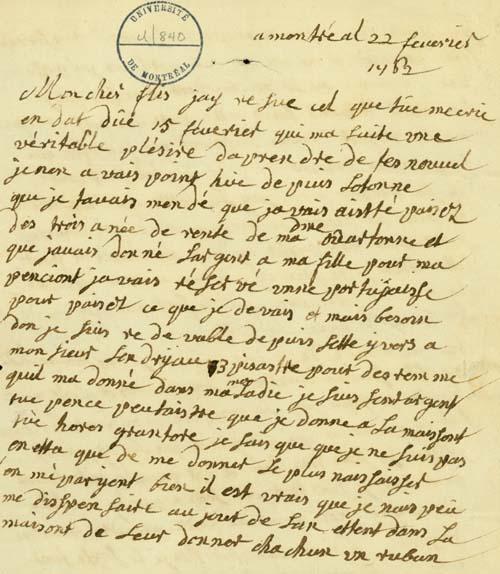 UNIVERSITÉ
d/840
DE MONTRÉAL
a montréal 22 feverier
1763
Moncher fils jay resue cel que tüe mecrie
en dat düe 15 féverier qui ma faite vne
véritable plésire daprendre de tes nouvel
je nen avais point hüe de puis lotonne
que je tavais mendé que javais aistté paiséz
des trois anée de rente de ma dme et
que javais donné largent a ma fille pour ma
penciont javais réservé vnne portugaisse
pour paiséz ce que je devais et mais besoin
don je suis redevable depuis sette yvers a
monsieur 73 piastre pour des remme
quil ma donnée dans ma maladie je suis sent argent
tue pence peutaistre que je donne a la maisont
tüe hores grantore je sais que je ne suis pas
en etta que de me donner le plus naissaiser
on mépargent bien il est vrais que je nais peu
me dispensaite au jour de lan ettent dans la
maisont de leur donner chachun vn ruban